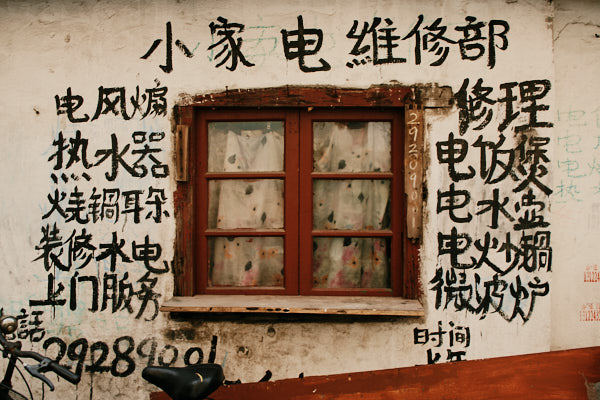 小家电維修部
电风煽
热水器
烧锅耳朵
装修水电
上门服务
話
29289001
修理
电饭煲
电水壶
电炒锅
微波炉
时间